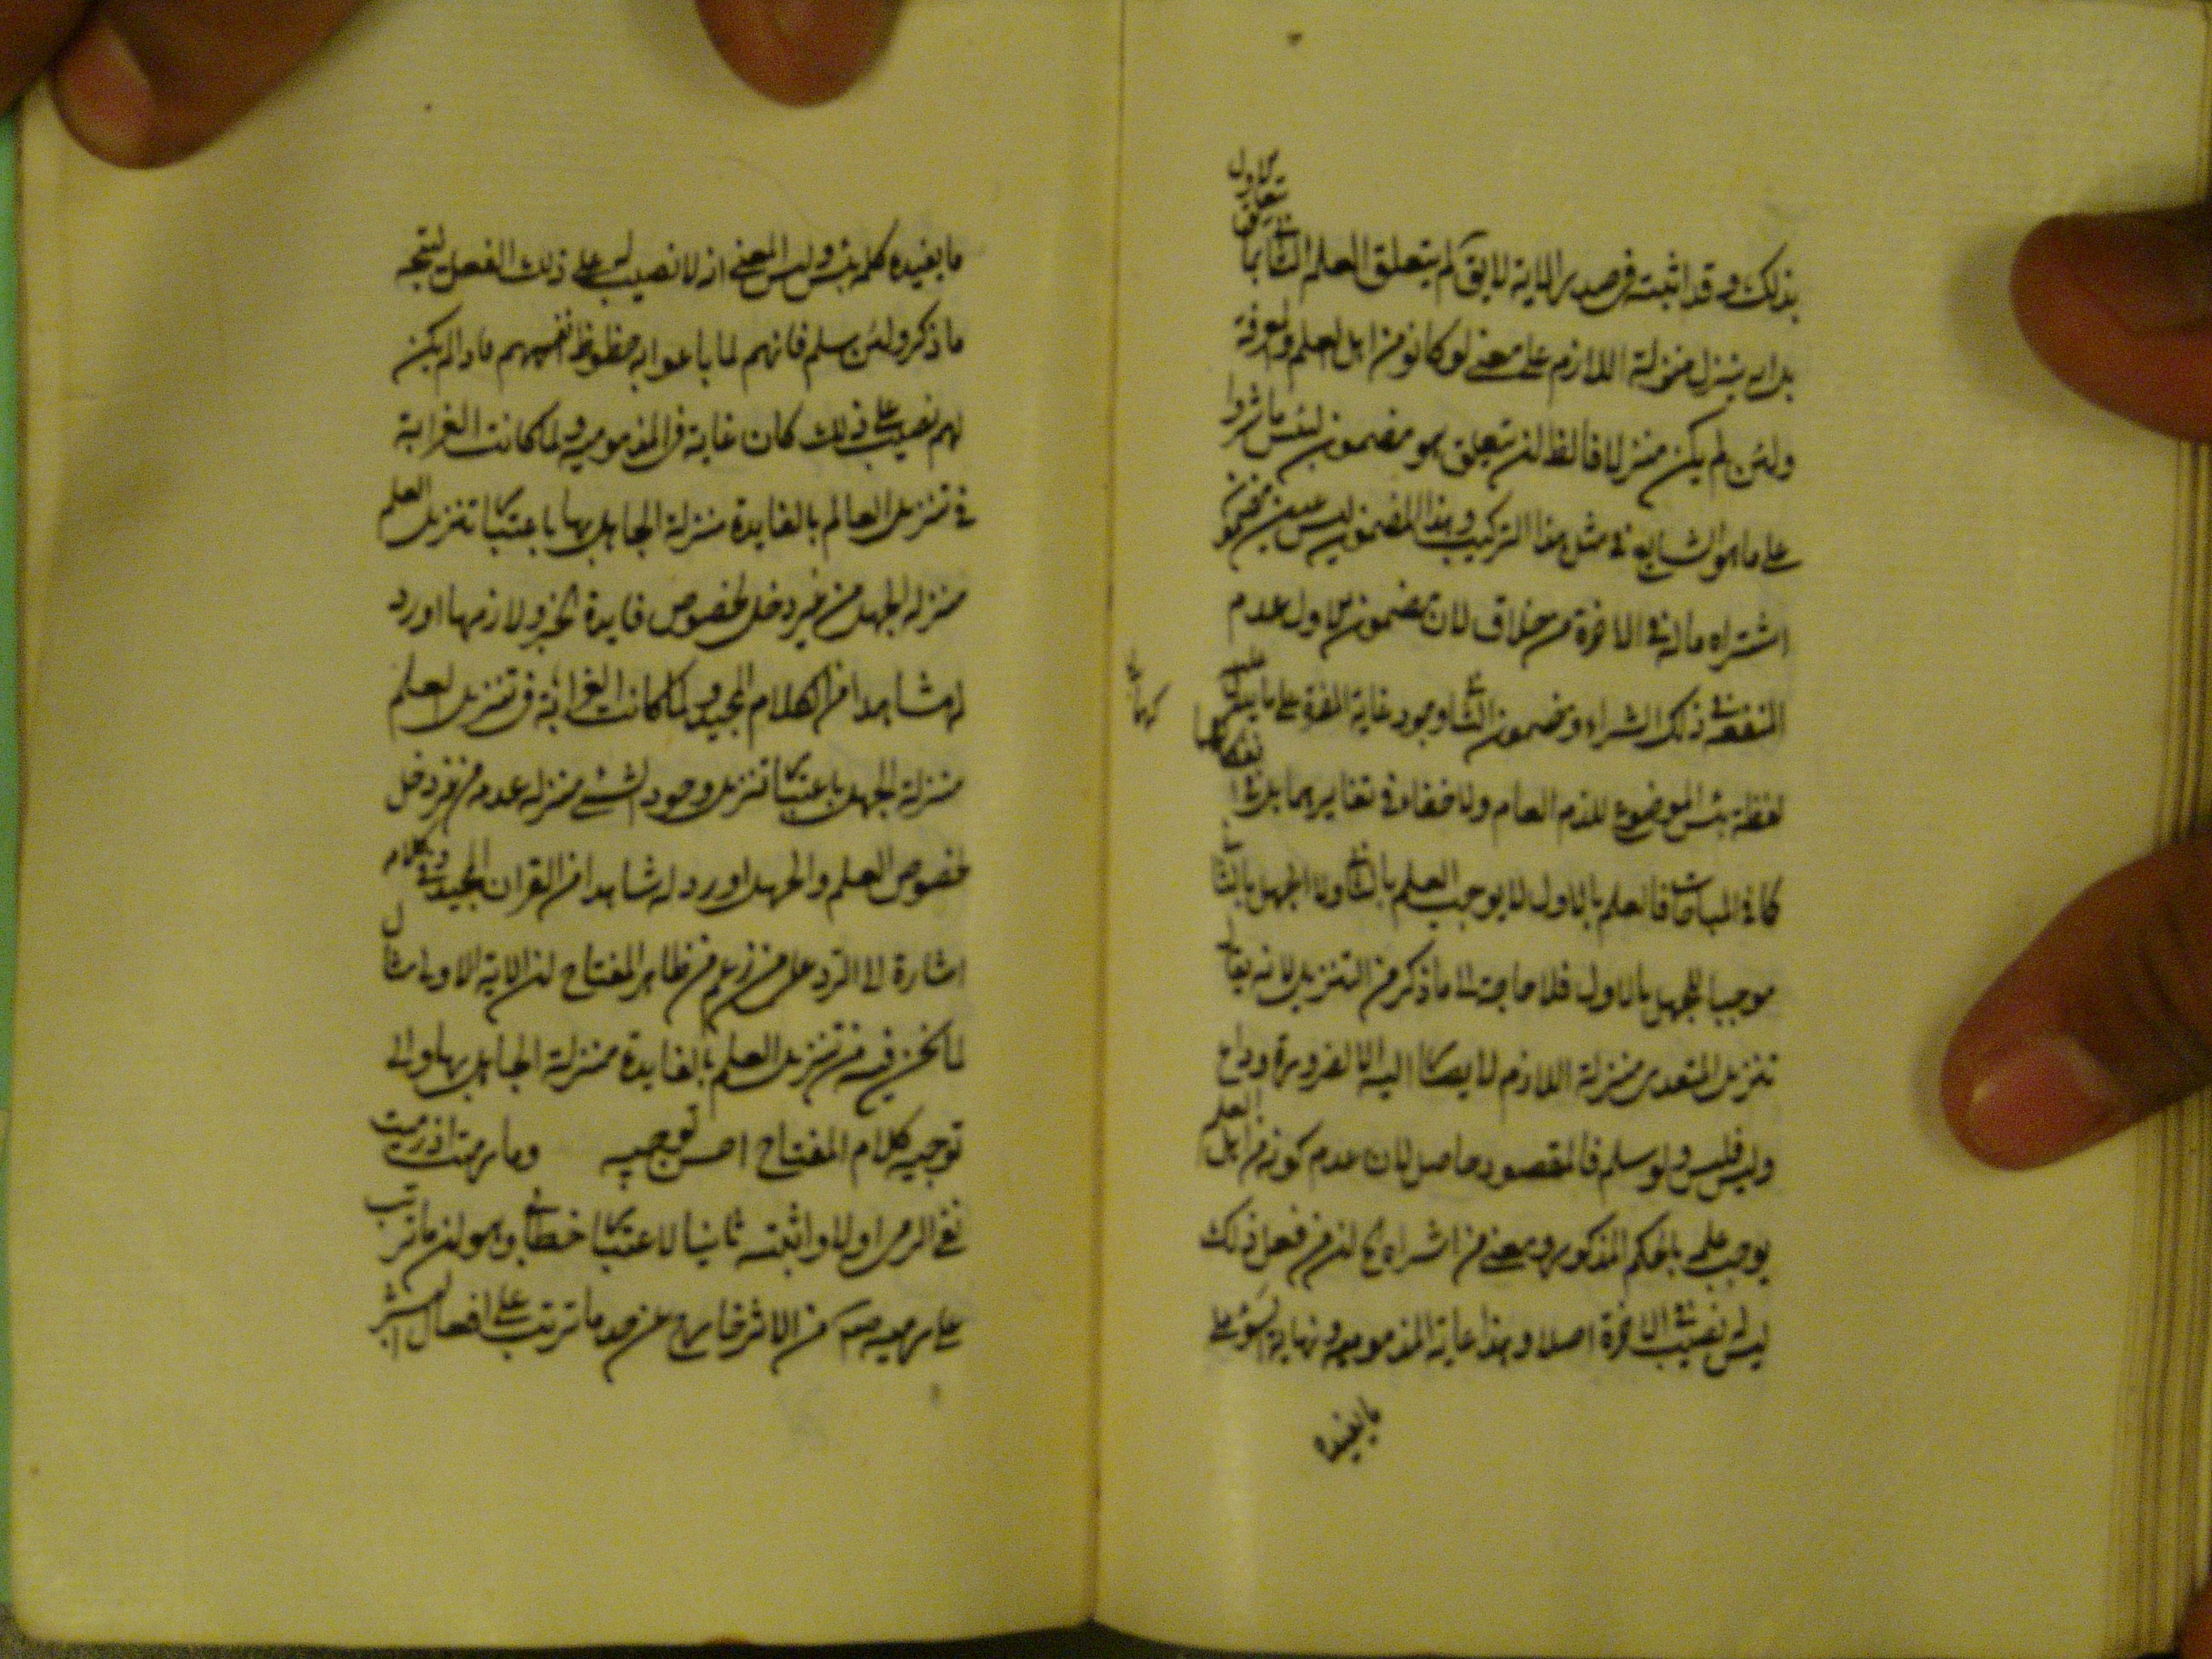 بذلك وقد اثبته في صدر الاية لا يق لم يتعلق العلم الثاني بما تعلق به الاول
بل اى ينزل منزلة اللازم على معنى لو كانوا من اهل العلم والمعرفة
ولئن لم يكن منزلا فالظ ان متعلق هو مضمون لبئس ما شروا
على ما هو الشايع في مثل هذا التركيب وهذا المضمون ليس عين مضمون
اشتراه ما له في الاخرة من خلاق لان مضمون الاول عدم
النفع في ذلك الشراء ومضمون الثاني وجود غاية المضرة على ما يدل عليه
لفظة بئس الموضوع للذم العام ولا خفاء في تغايرهما بل في انفكاكهما
كما في المباحات فالعلم بالاول لا يوجب العلم بالثاني ولا الجهل بالثاني
موجبا للجهل بالاول فلا حاجة الى ما ذكر من التنزيل لانه يقال
تنزيل المتعدى منزلة اللازم لا يصار اليه الا لضرورة وداع
وليس فليس ولو سلم فالمقصود حاصل لان عدم كونه من اهل العلم
يوجب علمه بالحكم المذكور ومعنى من اشتراه الخ ان من فعل ذلك
ليس له نصيب في الاخرة اصلا وهذا غاية المذمومية ونهاية السوء على
ما يفيده
ما يفيده كلمة بئس وليس المعنى انه لا نصيب له على ذلك الفعل ليتجه
ما ذكر ولئن سلم فانهم لما باعوا به حظوظ انفسهم فاذا لم يكن
لهم نصيب على ذلك كان غاية في المذمومية ولما كانت الغرابة
في تنزيل العالم بالفايدة منزلة الجاهل بها باعتبار تنزيل العلم
منزلة الجهل من غير دخل لخصوص فايدة الخبر ولازمها اورد
له شاهدا من الكلام المجيد ولما كانت الغرابة في تنزيل العلم
منزلة الجهل باعتبار تنزيل وجود الشئ منزلة عدمه من غير دخل
لخصوص العلم والجهل اورد له شاهدا من القران المجيد وفي كلامه
اشارة الى الرد على من زعم من ظاهر المفتاح ان الاية الاولى مثال
لما نحن فيه من تنزيل العلم بالفايدة منزلة الجاهل بها والى
توجيه كلام المفتاح احسن توجيه وما رميت اذ رميت
نفى الرمى اولا واثبته ثانيا لاعتبار خطابى وهو ان ما ترتب
على رميه صم من الاثر خارج عن حد ما ترتب على افعال البشر